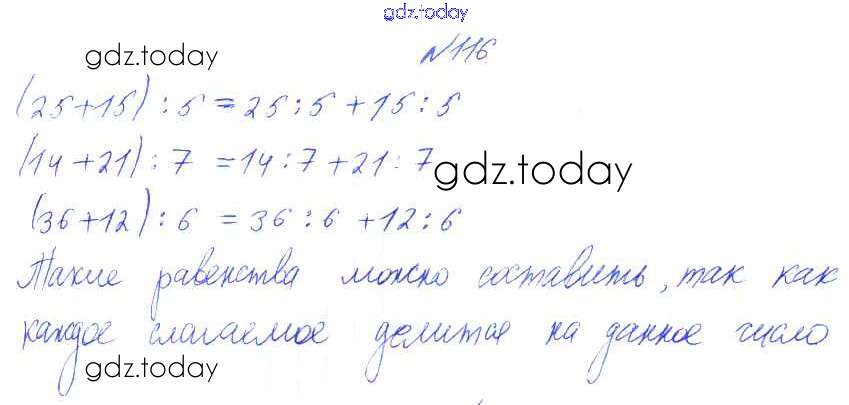 gdz.today
gdz.today №116
(25+15) : 5 = 25 : 5 + 15 : 5
(14+21) : 7 = 14 : 7 + 21 : 7
gdz.today
(36+12) : 6 = 36 : 6 + 12 : 6
Такие равенства можно составить, так как
каждое слагаемое делится на данное число
gdz.today